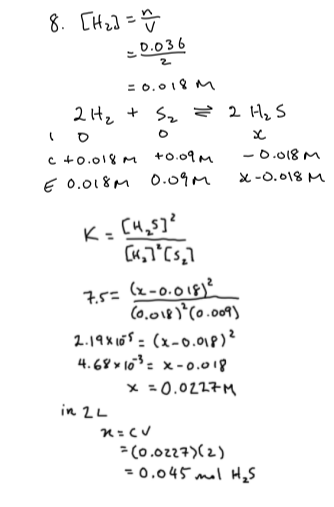 8. [H₂] = n/V
= 0.036/2
= 0.018 M
2 H₂ + S₂ ⇌ 2 H₂S
I 0 0 x
C +0.018 M +0.09 M -0.018 M
E 0.018 M 0.09 M x-0.018 M
K = [H₂S]²/[H₂]²[S₂]
7.5 = (x-0.018)²/(0.018)²(0.009)
2.19 x 10⁻⁵ = (x-0.018)²
4.68 x 10⁻³ = x-0.018
x = 0.0227 M
in 2L
n = CV
= (0.0227)(2)
= 0.045 mol H₂S